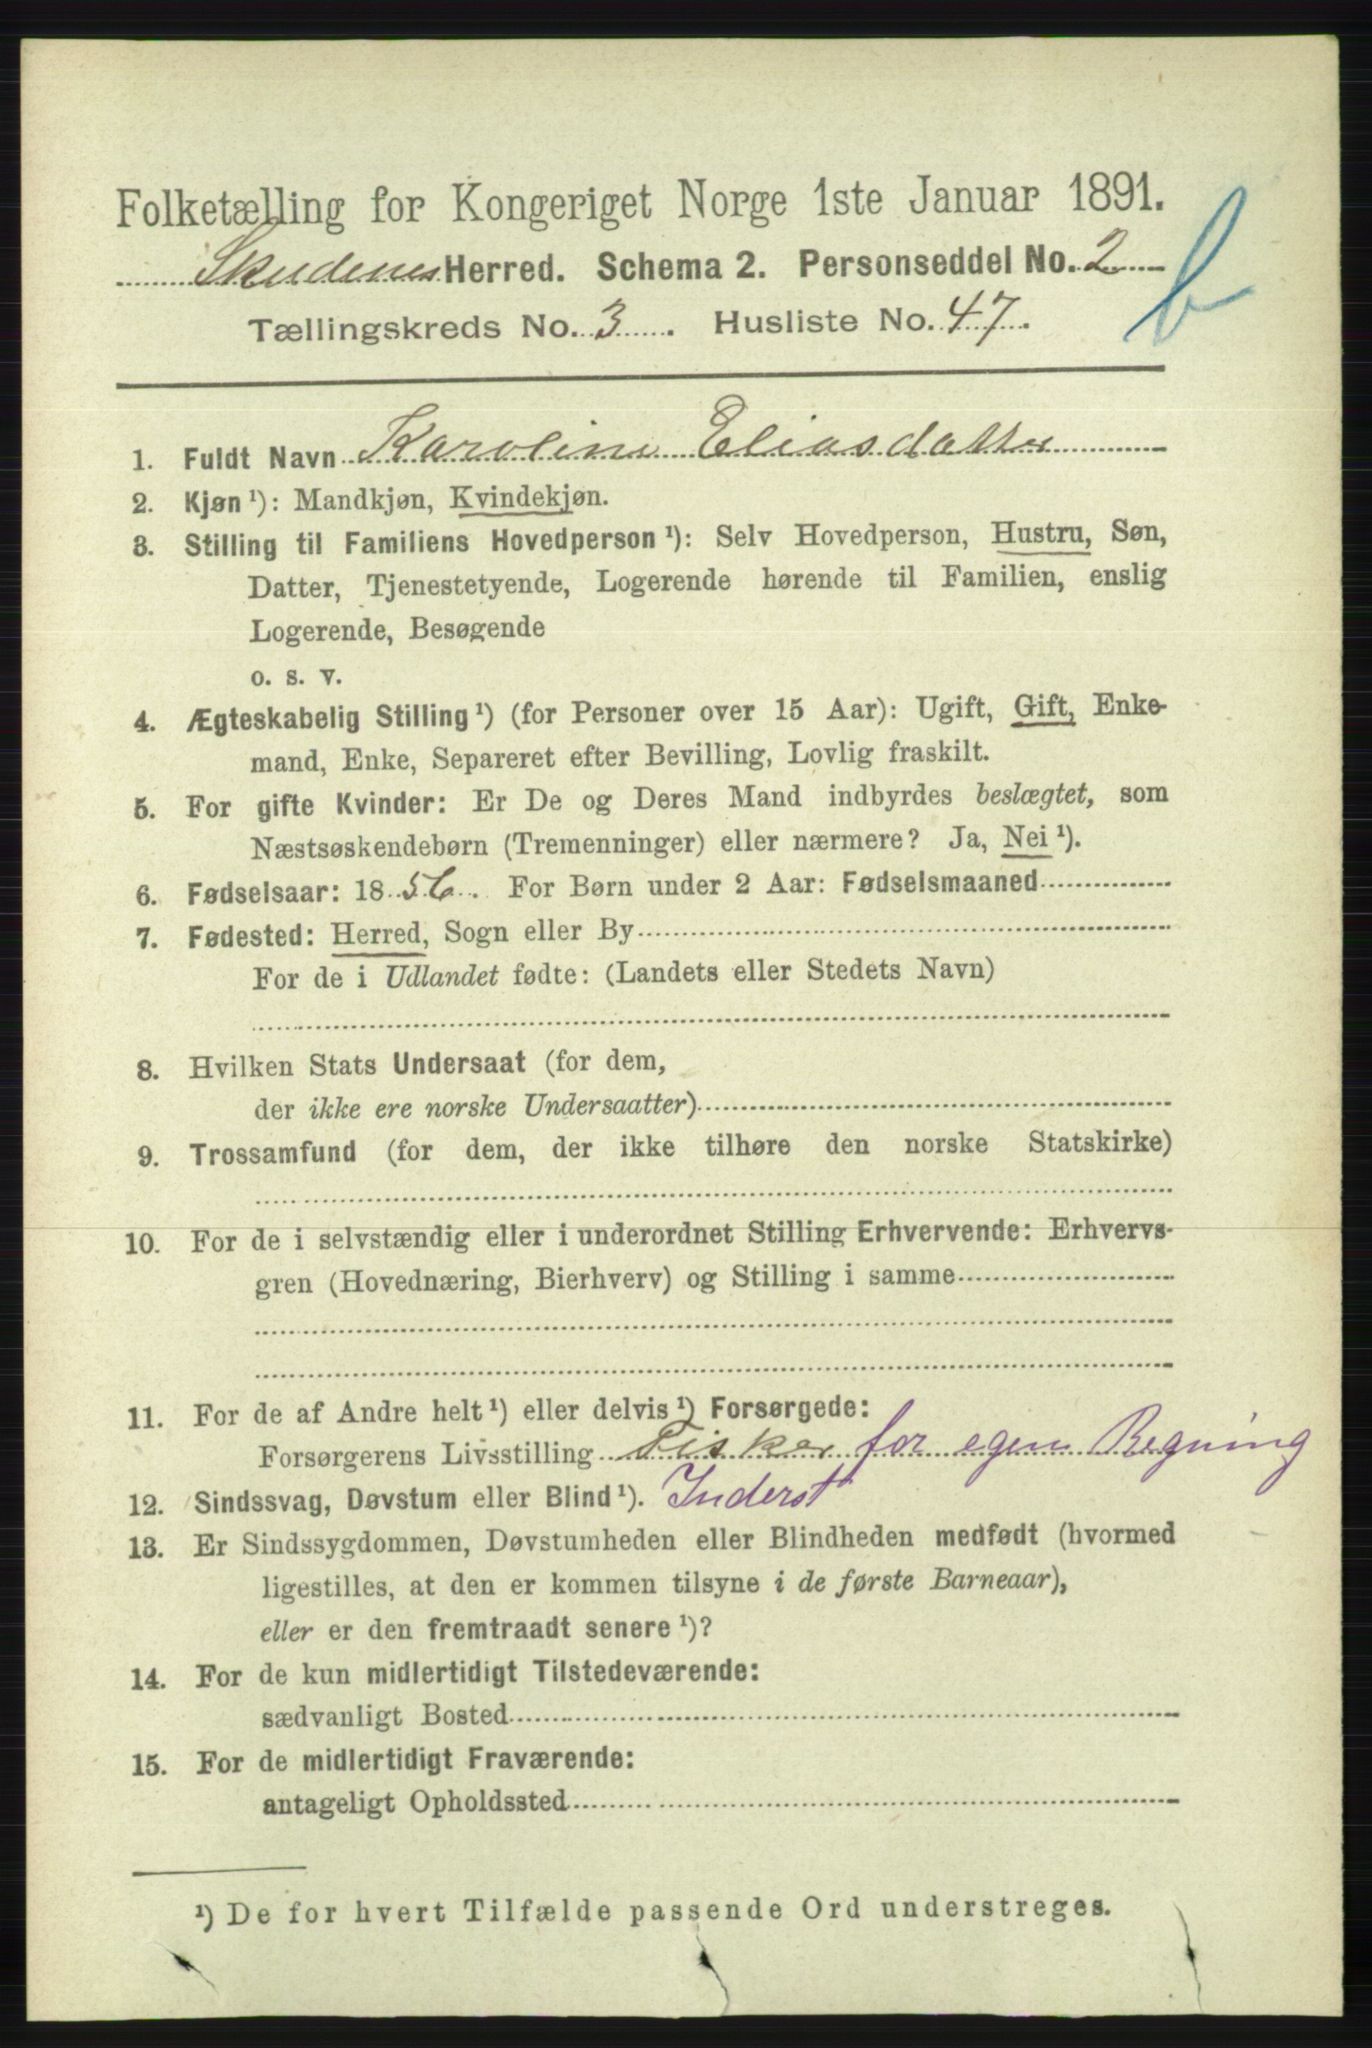 Folketælling for Kongeriget Norge 1ste Januar 1891.
Skudenes Herred. Schema 2. Personseddel No. 2
b
Tællingskreds No. 3. Husliste No. 47.
1. Fuldt Navn Karoline Eliasdatter
2. Kjøn ¹): Mandkjøn, Kvindekjøn.
3. Stilling til Familiens Hovedperson ¹): Selv Hovedperson, Hustru, Søn,
Datter, Tjenestetyende, Logerende hørende til Familien, enslig
Logerende, Besøgende
o. s. v.
4. Ægteskabelig Stilling ¹) (for Personer over 15 Aar): Ugift, Gift, Enke-
mand, Enke, Separeret efter Bevilling, Lovlig fraskilt.
5. For gifte Kvinder: Er De og Deres Mand indbyrdes beslægtet, som
Næstsøskendebørn (Tremenninger) eller nærmere? Ja, Nei ¹).
6. Fødselsaar: 1856. For Børn under 2 Aar: Fødselsmaaned
7. Fødested: Herred, Sogn eller By
For de i Udlandet fødte: (Landets eller Stedets Navn)
8. Hvilken Stats Undersaat (for dem,
der ikke ere norske Undersaatter)
9. Trossamfund (for dem, der ikke tilhøre den norske Statskirke)
10. For de i selvstændig eller i underordnet Stilling Erhvervende: Erhvervs-
gren (Hovednæring, Bierhverv) og Stilling i samme
11. For de af Andre helt ¹) eller delvis ¹) Forsørgede:
Forsørgerens Livsstilling Fisker for egen Regning
12. Sindssvag, Døvstum eller Blind ¹). Inderst
13. Er Sindssygdommen, Døvstumheden eller Blindheden medfødt (hvormed
ligestilles, at den er kommen tilsyne i de første Barneaar),
eller er den fremtraadt senere ¹)?
14. For de kun midlertidigt Tilstedeværende:
sædvanligt Bosted
15. For de midlertidigt Fraværende:
antageligt Opholdssted
¹) De for hvert Tilfælde passende Ord understreges.